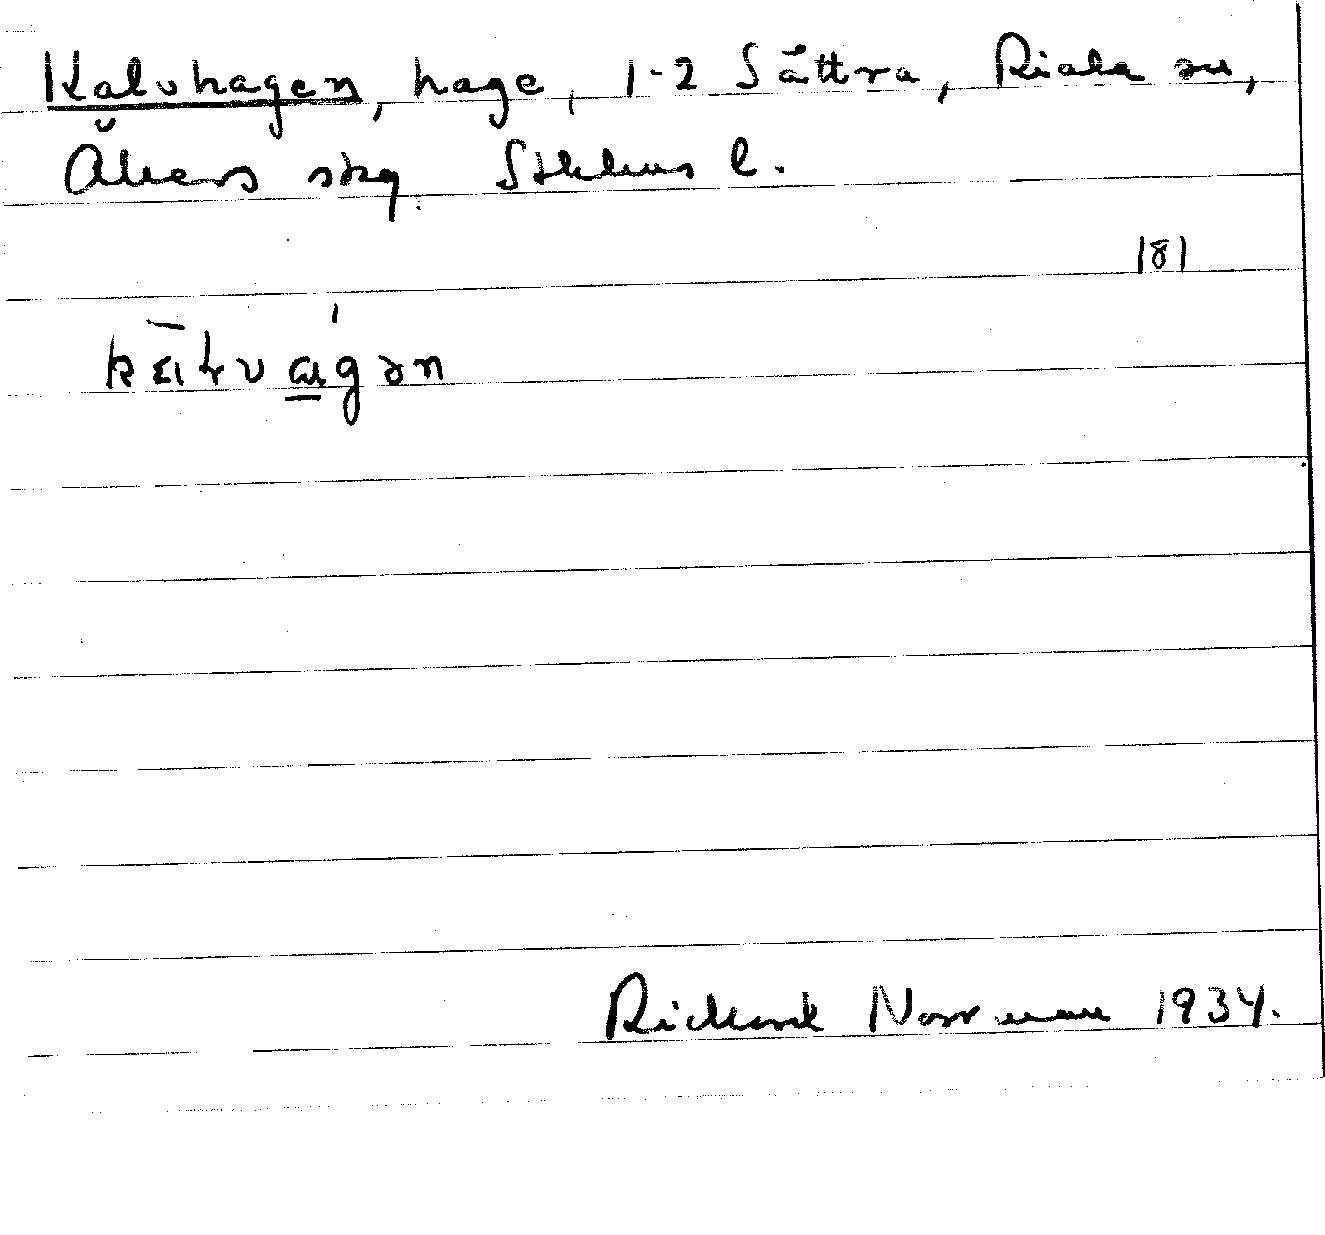 Kalvhagen, hage, 1-2 Sättra, Riala sn,
Åkers skg. Sthlms l.
181
Rickard Norrman 1934.